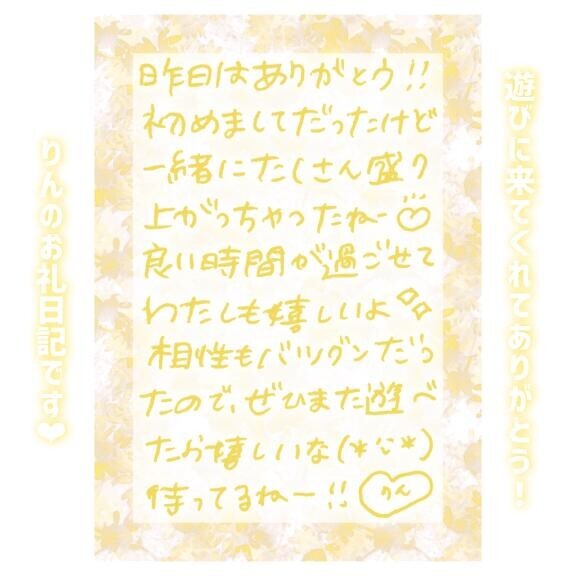 遊びに来てくれてありがとう!
昨日はありがとう!!
初めましてだったけど
一緒にたくさん盛り
上がっちゃったねー♡
良い時間が過ごせて
わたしも嬉しいよ
相性もバツグンだっ
たので、ぜひまた遊べ
たら嬉しいな(*ˊᵕˋ*)
待ってるねー!!
りん
りんのお礼日記です❤